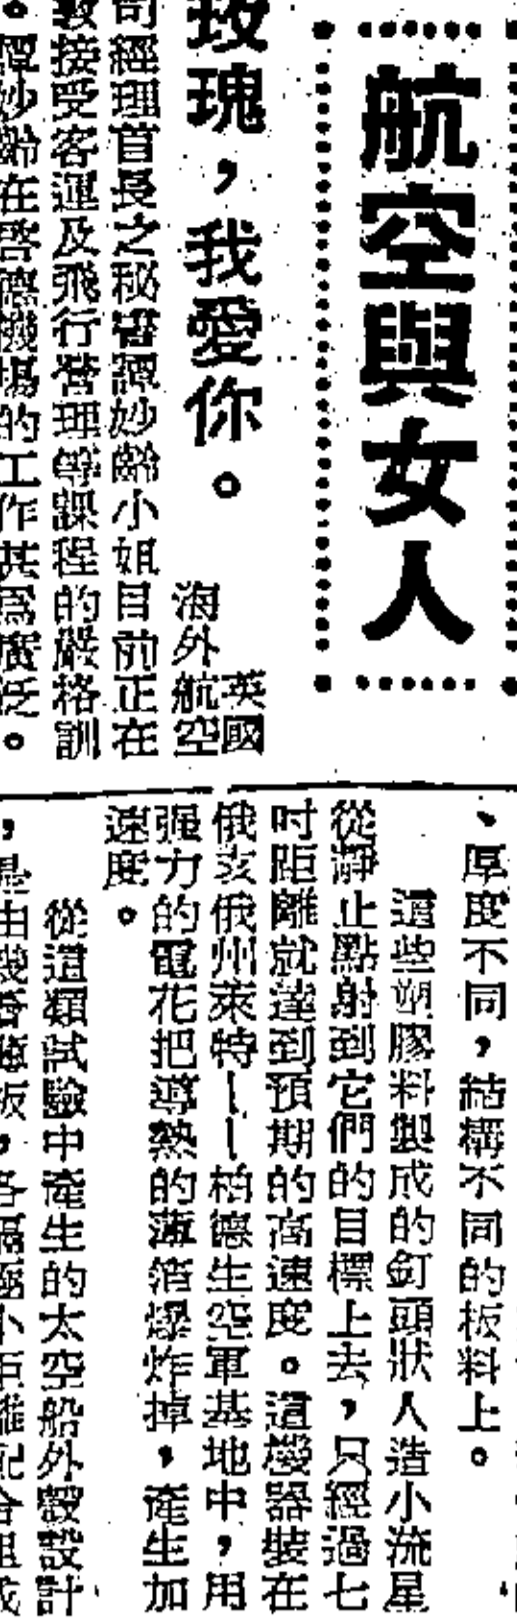 航空與女人
玫瑰，我愛你。
英國
海外航空
司經理首長之秘書譚妙齡小姐目前正在
接受客運及飛行營理等課程的嚴格訓
。譚妙齡在啓德機場的工作甚爲廣泛。
、厚度不同，結構不同的板料上。
這些塑膠料製成的釘頭狀人造小流星
從靜止點射到它們的目標上去，只經過七
吋距離就達到預期的高速度。這機器裝在
俄亥俄州萊特——柏德生空軍基地中，用
强力的電花把導熱的薄箔爆炸掉，產生加
速度。
從這類試驗中產生的太空船外殼設計
，是由幾層板，各隔極小距離配合組成